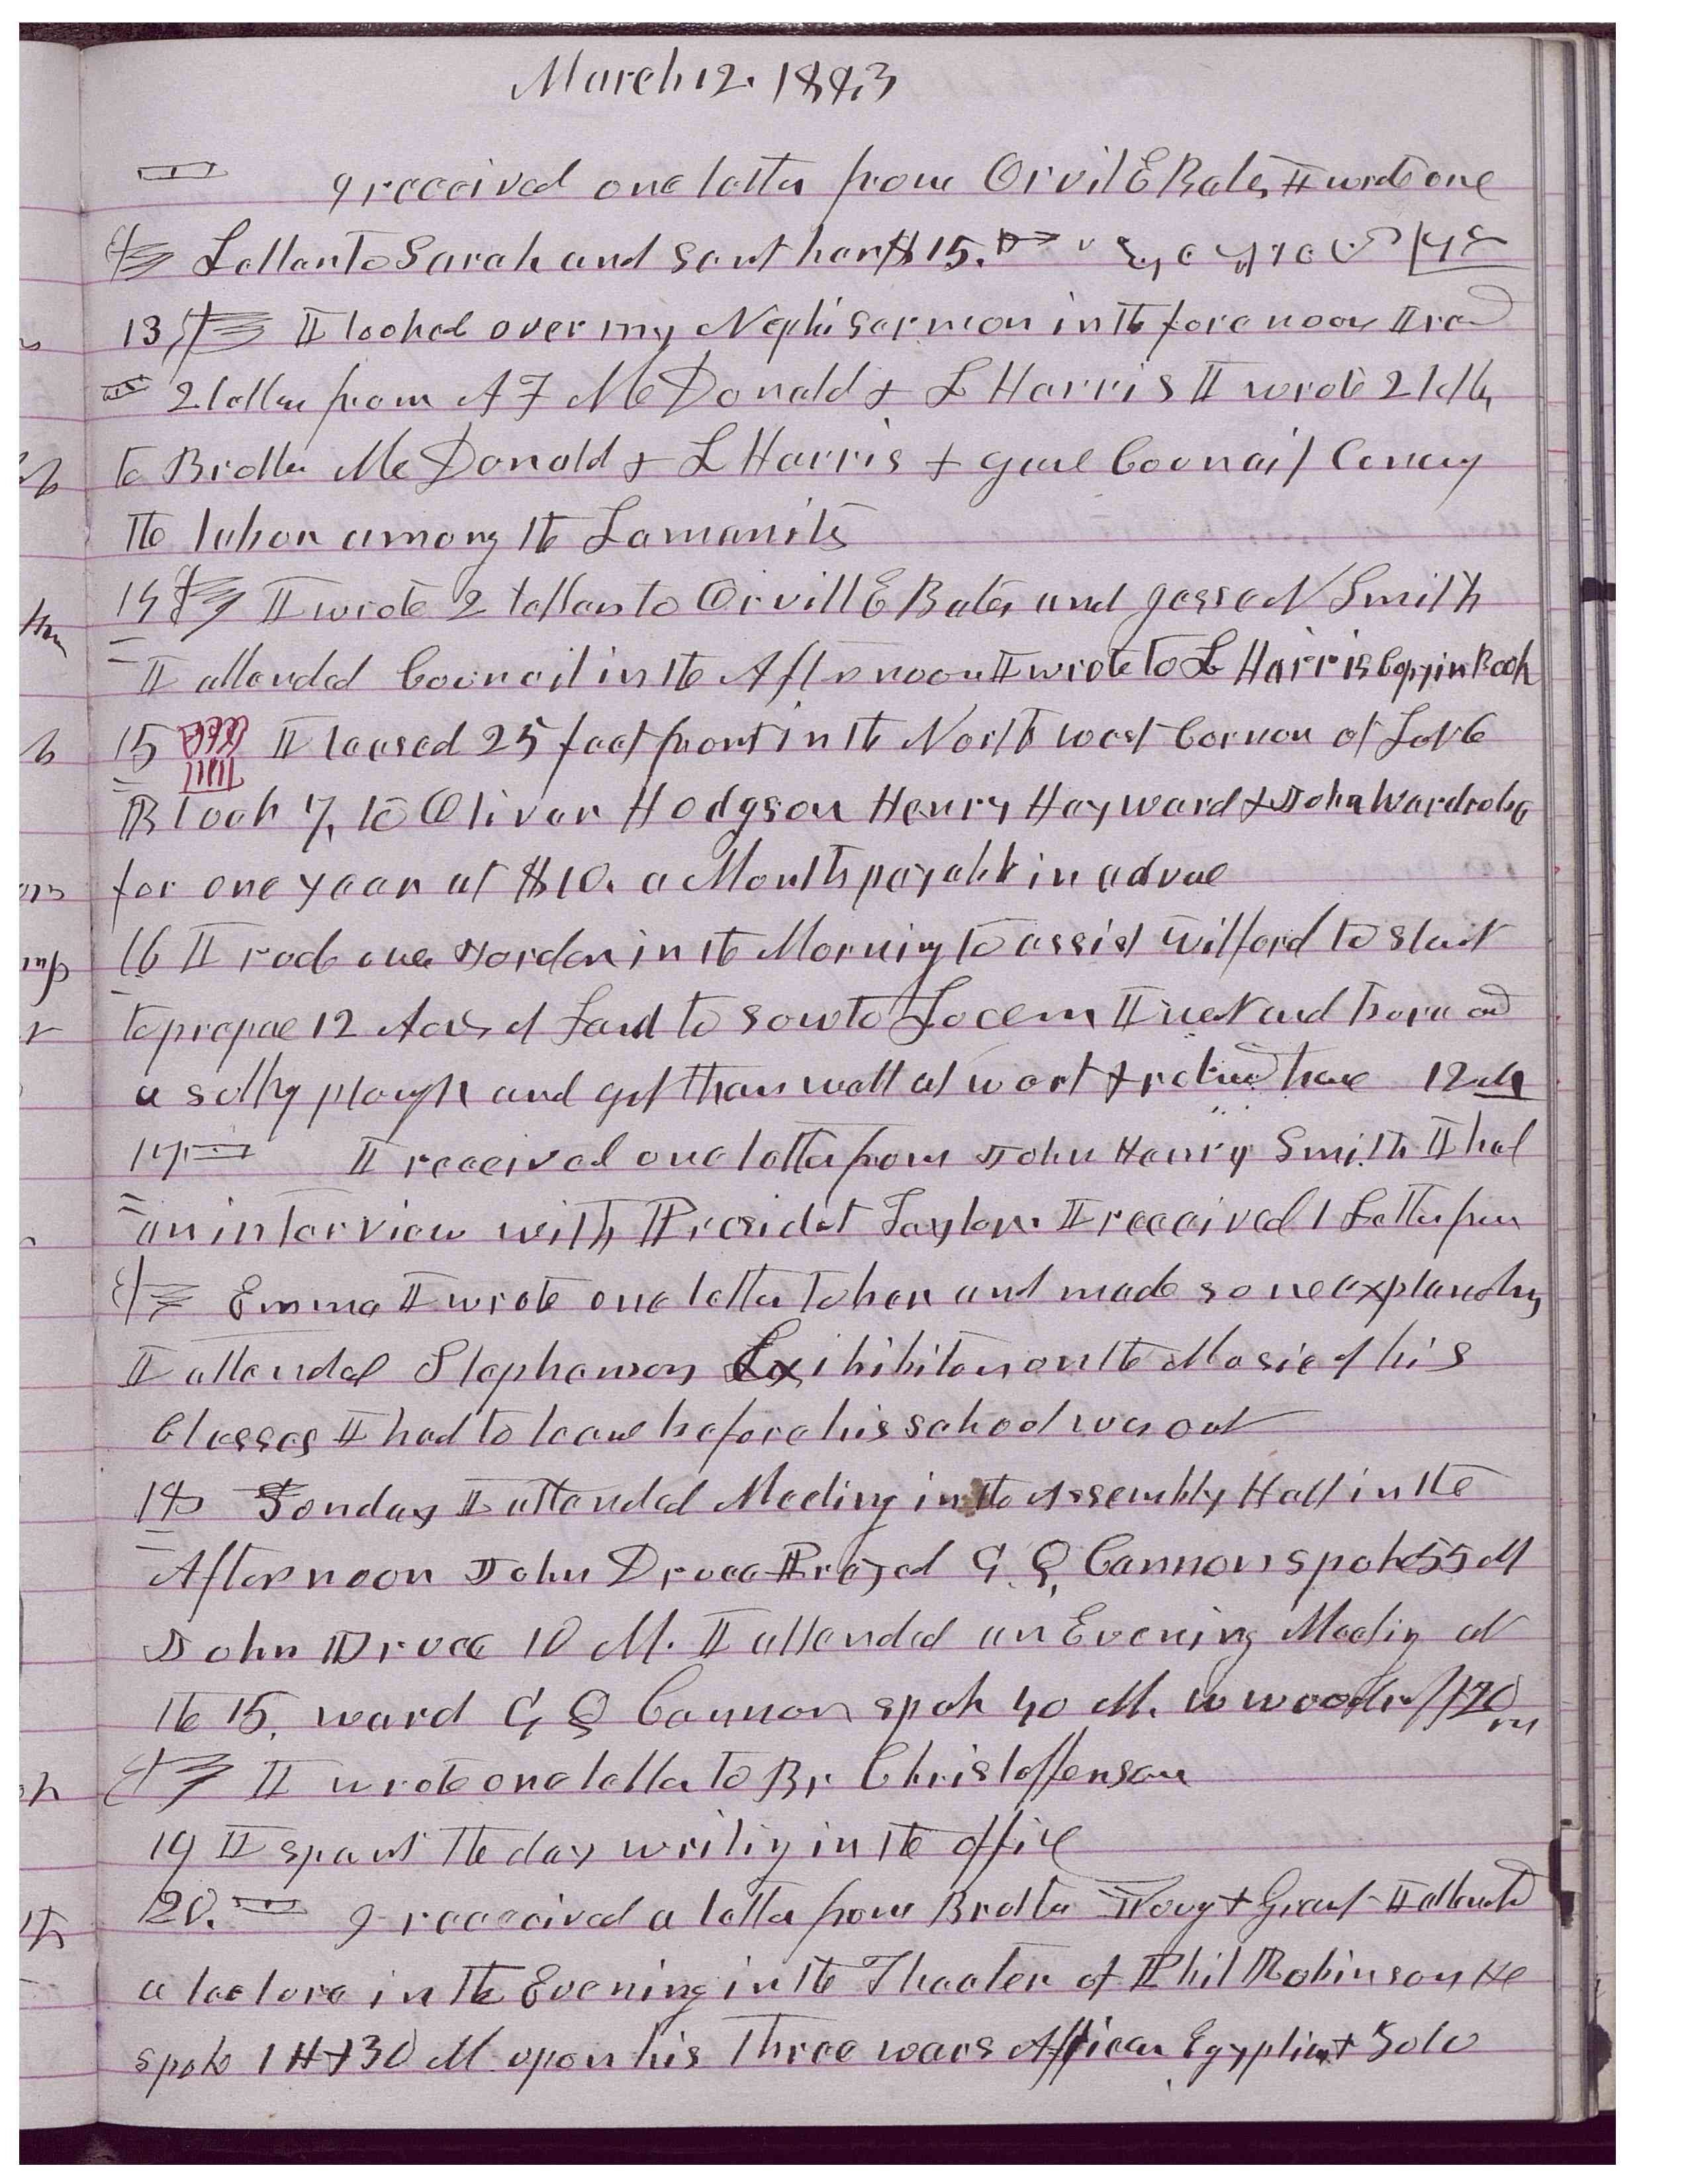 March 12. 1883
I received one letter from Orvil E Bates I wrote one
Letter to Sarah and sent her $15.
13 I looked over my Nephi Sermon in the forenoon I recd
2 letters from A F McDonald & L Harris I wrote 2 letters
to Brother McDonald & L Harris & gave Council Concerning
the labor among the Lamanites
14 I wrote 2 letters to Orvill E Bates and Jesse N Smith
I attended Council in the Afternoon I wrote to L Harris Copy in Book
15 I leased 25 feet front in the North west Corner of Lot 6
Block 7, to Oliver Hodgson Henry Hayward & John Wardrobe
for one year at $10. a Month payable in advance
16 I rode over Jordon in the Morning to assist Wilford to start
to prepare 12 Acres of Land to sow to Lucern I met and
a sulky plough and got them well at work & returned home 12 M
17 I received one letter from John Henry Smith I had
an interview with President Taylor. I received 1 Letter from
Emma I wrote one letter to her and made some explanations
I attended Stephenson Exihibiton on the Music of his
Classes I had to leave before his school was out
18 Sunday I attended Meeting in the Assembly Hall in the
Afternoon John Druce Prayed G. Q. Cannon spoke 55 M
John Druce 10 M. I attended an Evening Meeting at
the 15, ward G Q Cannon spoke 40 M. W Woodruff 20 m
I wrote one letter to Br Christoffersen
19 I spent the day writing in the office
20. I receceived a letter from Brother & Grant I attended
a lecture in the Evening in the Theater of Phil Robinson He
spoke 1 H & 30 M upon his three wars African Egyptian &